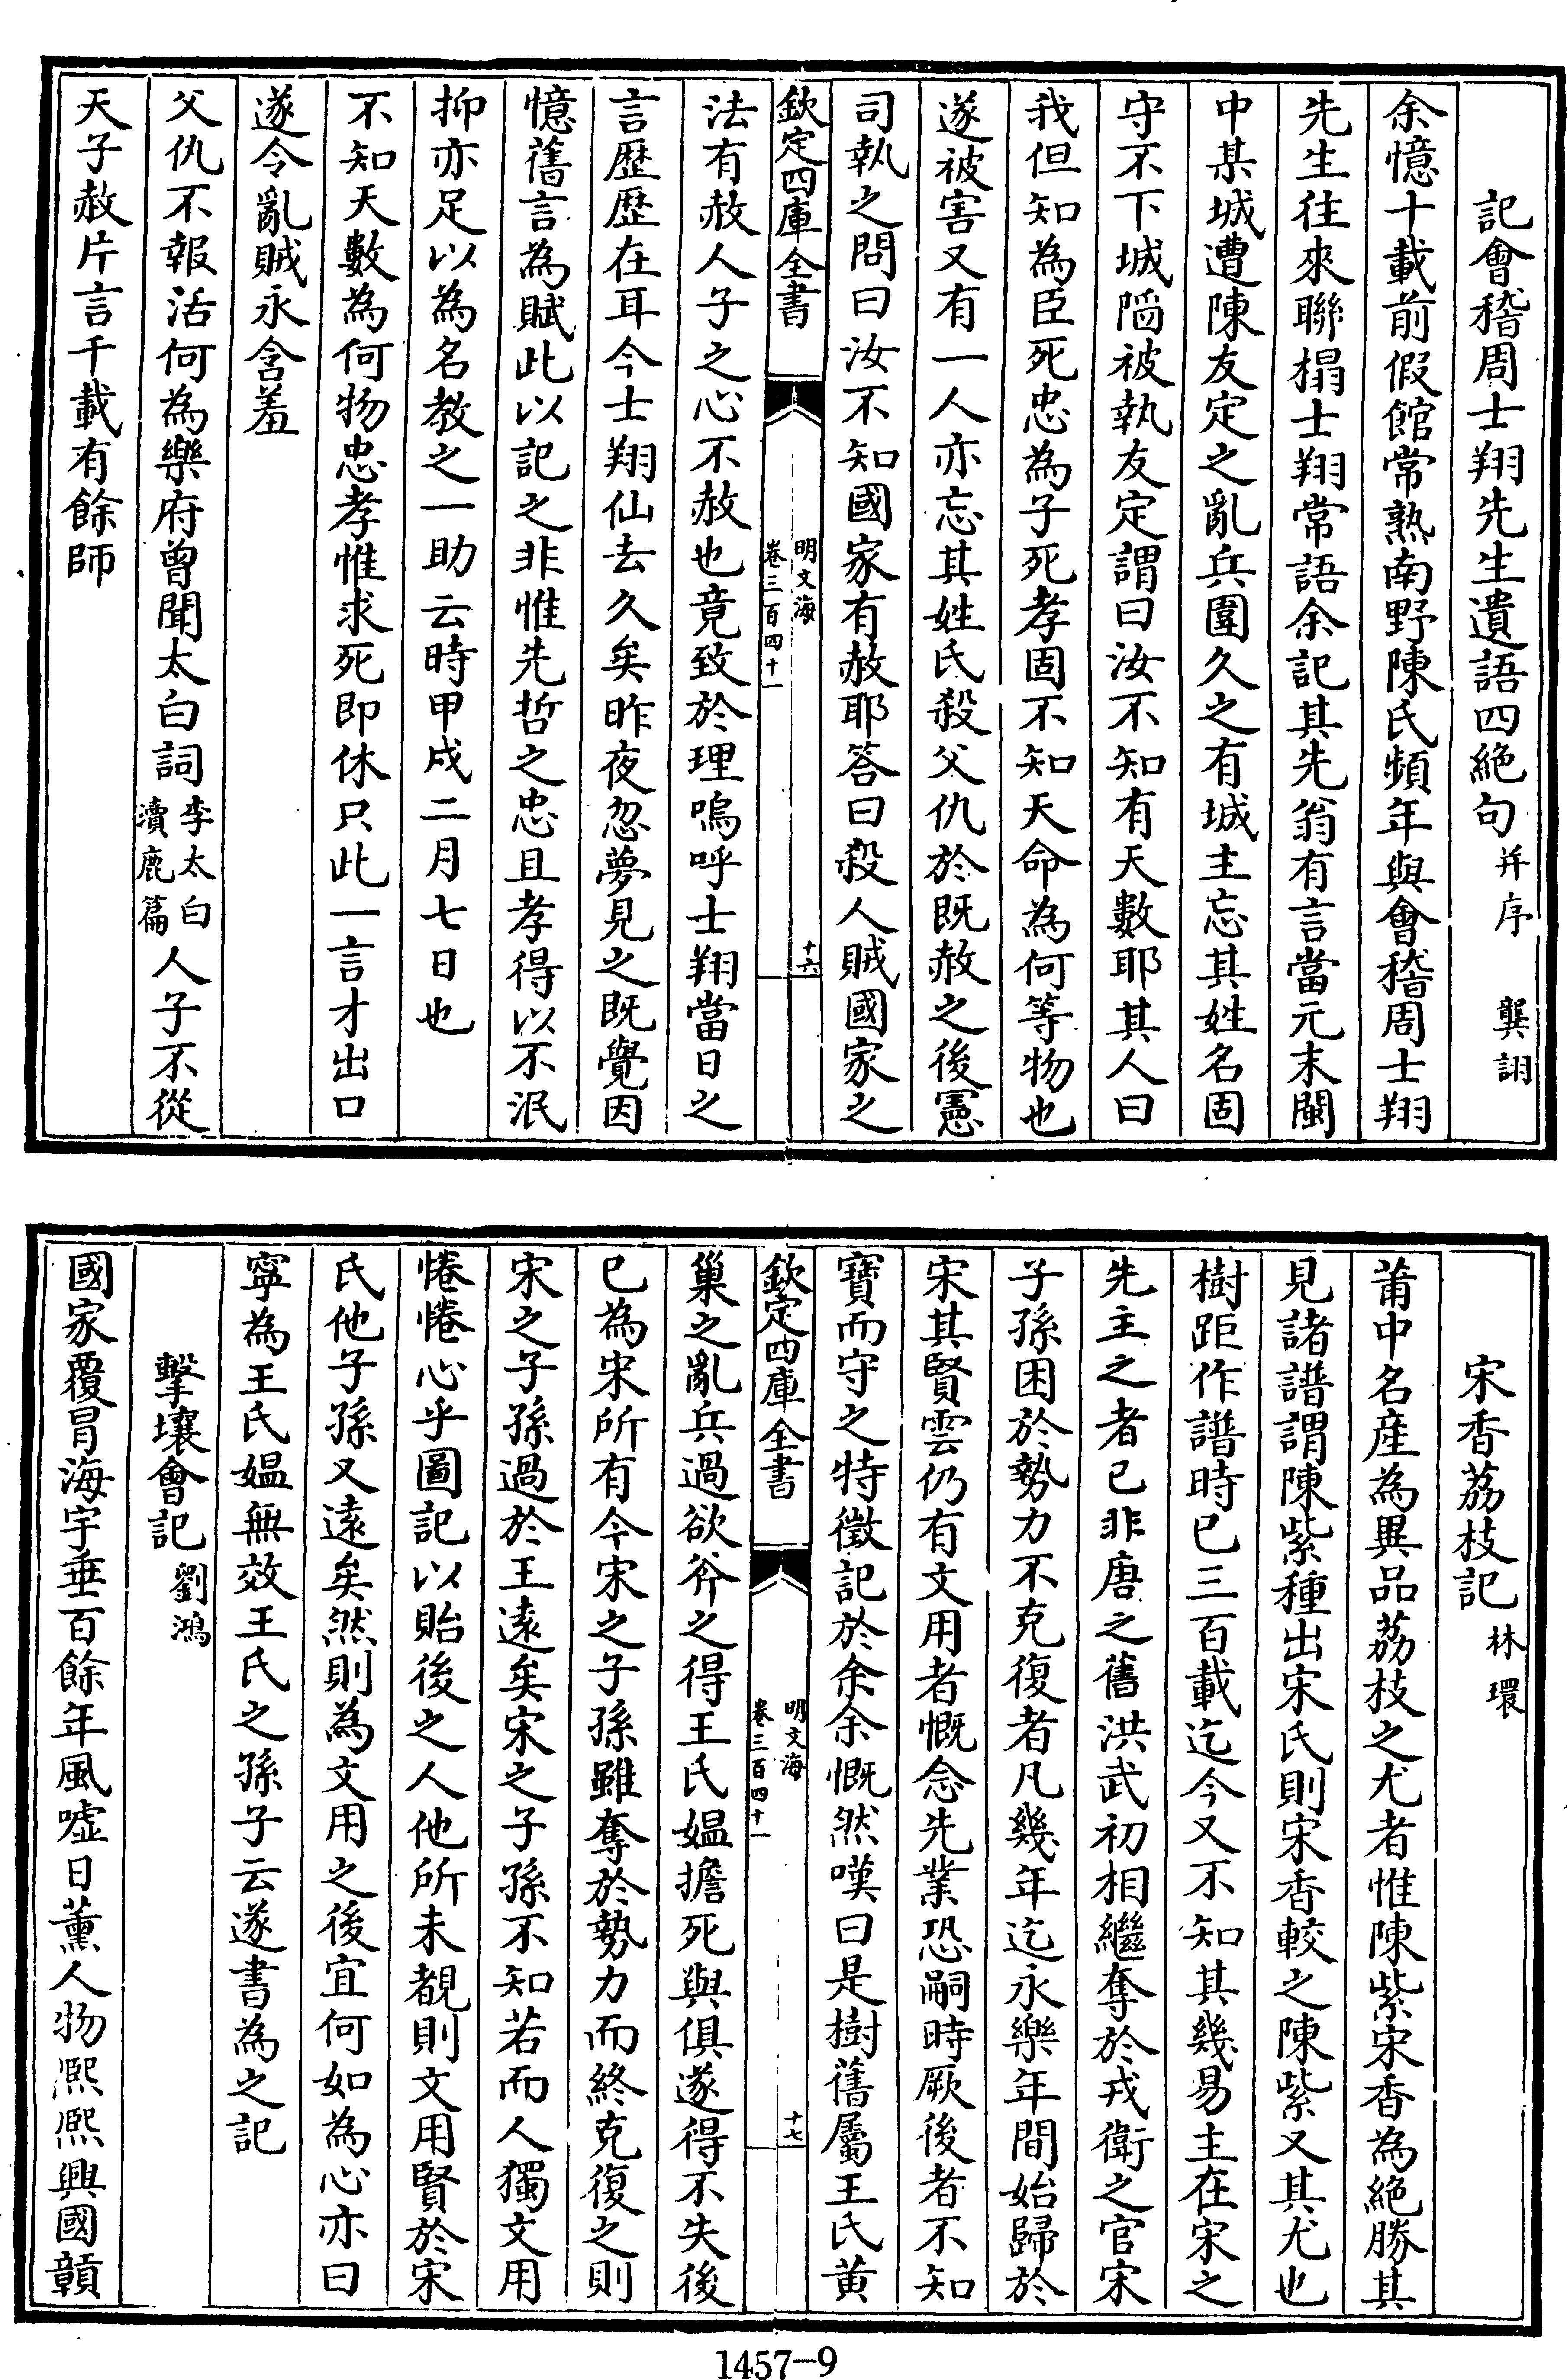 記會稽周士翔先生遺語四絶句并序 龔詡
余憶十載前假館常熟南野陳氏頻年與會稽周士翔
先生往來聯榻士翔常語余記其先翁有言當元末閩
中某城遭陳友定之亂兵圍久之有城主忘其姓名固
守不下城陷被執友定謂曰汝不知有天數耶其人曰
我但知為臣死忠為子死孝固不知天命為何等物也
遂被害又有一人亦忘其姓氏殺父仇於既赦之後憲
司執之問曰汝不知國家有赦耶答曰殺人賊國家之
欽定四庫全書
明文海
卷三百四十一
十六
法有赦人子之心不赦也竟致於理嗚呼士翔當日之
言歴歴在耳今士翔仙去久矣昨夜忽夢見之既覺因
憶舊言為賦此以記之非惟先哲之忠且孝得以不泯
抑亦足以為名教之一助云時甲戍二月七日也
不知天數為何物忠孝惟求死即休只此一言才出口
遂令亂賊永含羞
父仇不報活何為樂府曾聞太白詞李太白瀆鹿篇人子不從
天子赦片言千載有餘師
宋香荔枝記林環
莆中名産為異品荔枝之尤者惟陳紫宋香為絶勝其
見諸譜謂陳紫種出宋氏則宋香較之陳紫又其尤也
樹距作譜時已三百載迄今又不知其幾易主在宋之
先主之者已非唐之舊洪武初相繼奪於戎衛之官宋
子孫困於勢力不克復者凡幾年迄永樂年間始歸於
宋其賢雲仍有文用者慨念先業恐嗣時厥後者不知
寶而守之特徵記於余余慨然嘆曰是樹舊屬王氏黄
欽定四庫全書
明文海
卷三百四十一
十七
巢之亂兵過欲斧之得王氏媪擔死與俱遂得不失後
已為宋所有今宋之子孫雖奪於勢力而終克復之則
宋之子孫過於王遠矣宋之子孫不知若而人獨文用
惓惓心乎圖記以貽後之人他所未覩則文用賢於宋
氏他子孫又遠矣然則為文用之後宜何如為心亦曰
寜為王氏媪無效王氏之孫子云遂書為之記
擊壤會記劉鴻
國家覆冒海宇垂百餘年風噓日薰人物熈熈興國贑
1457-9